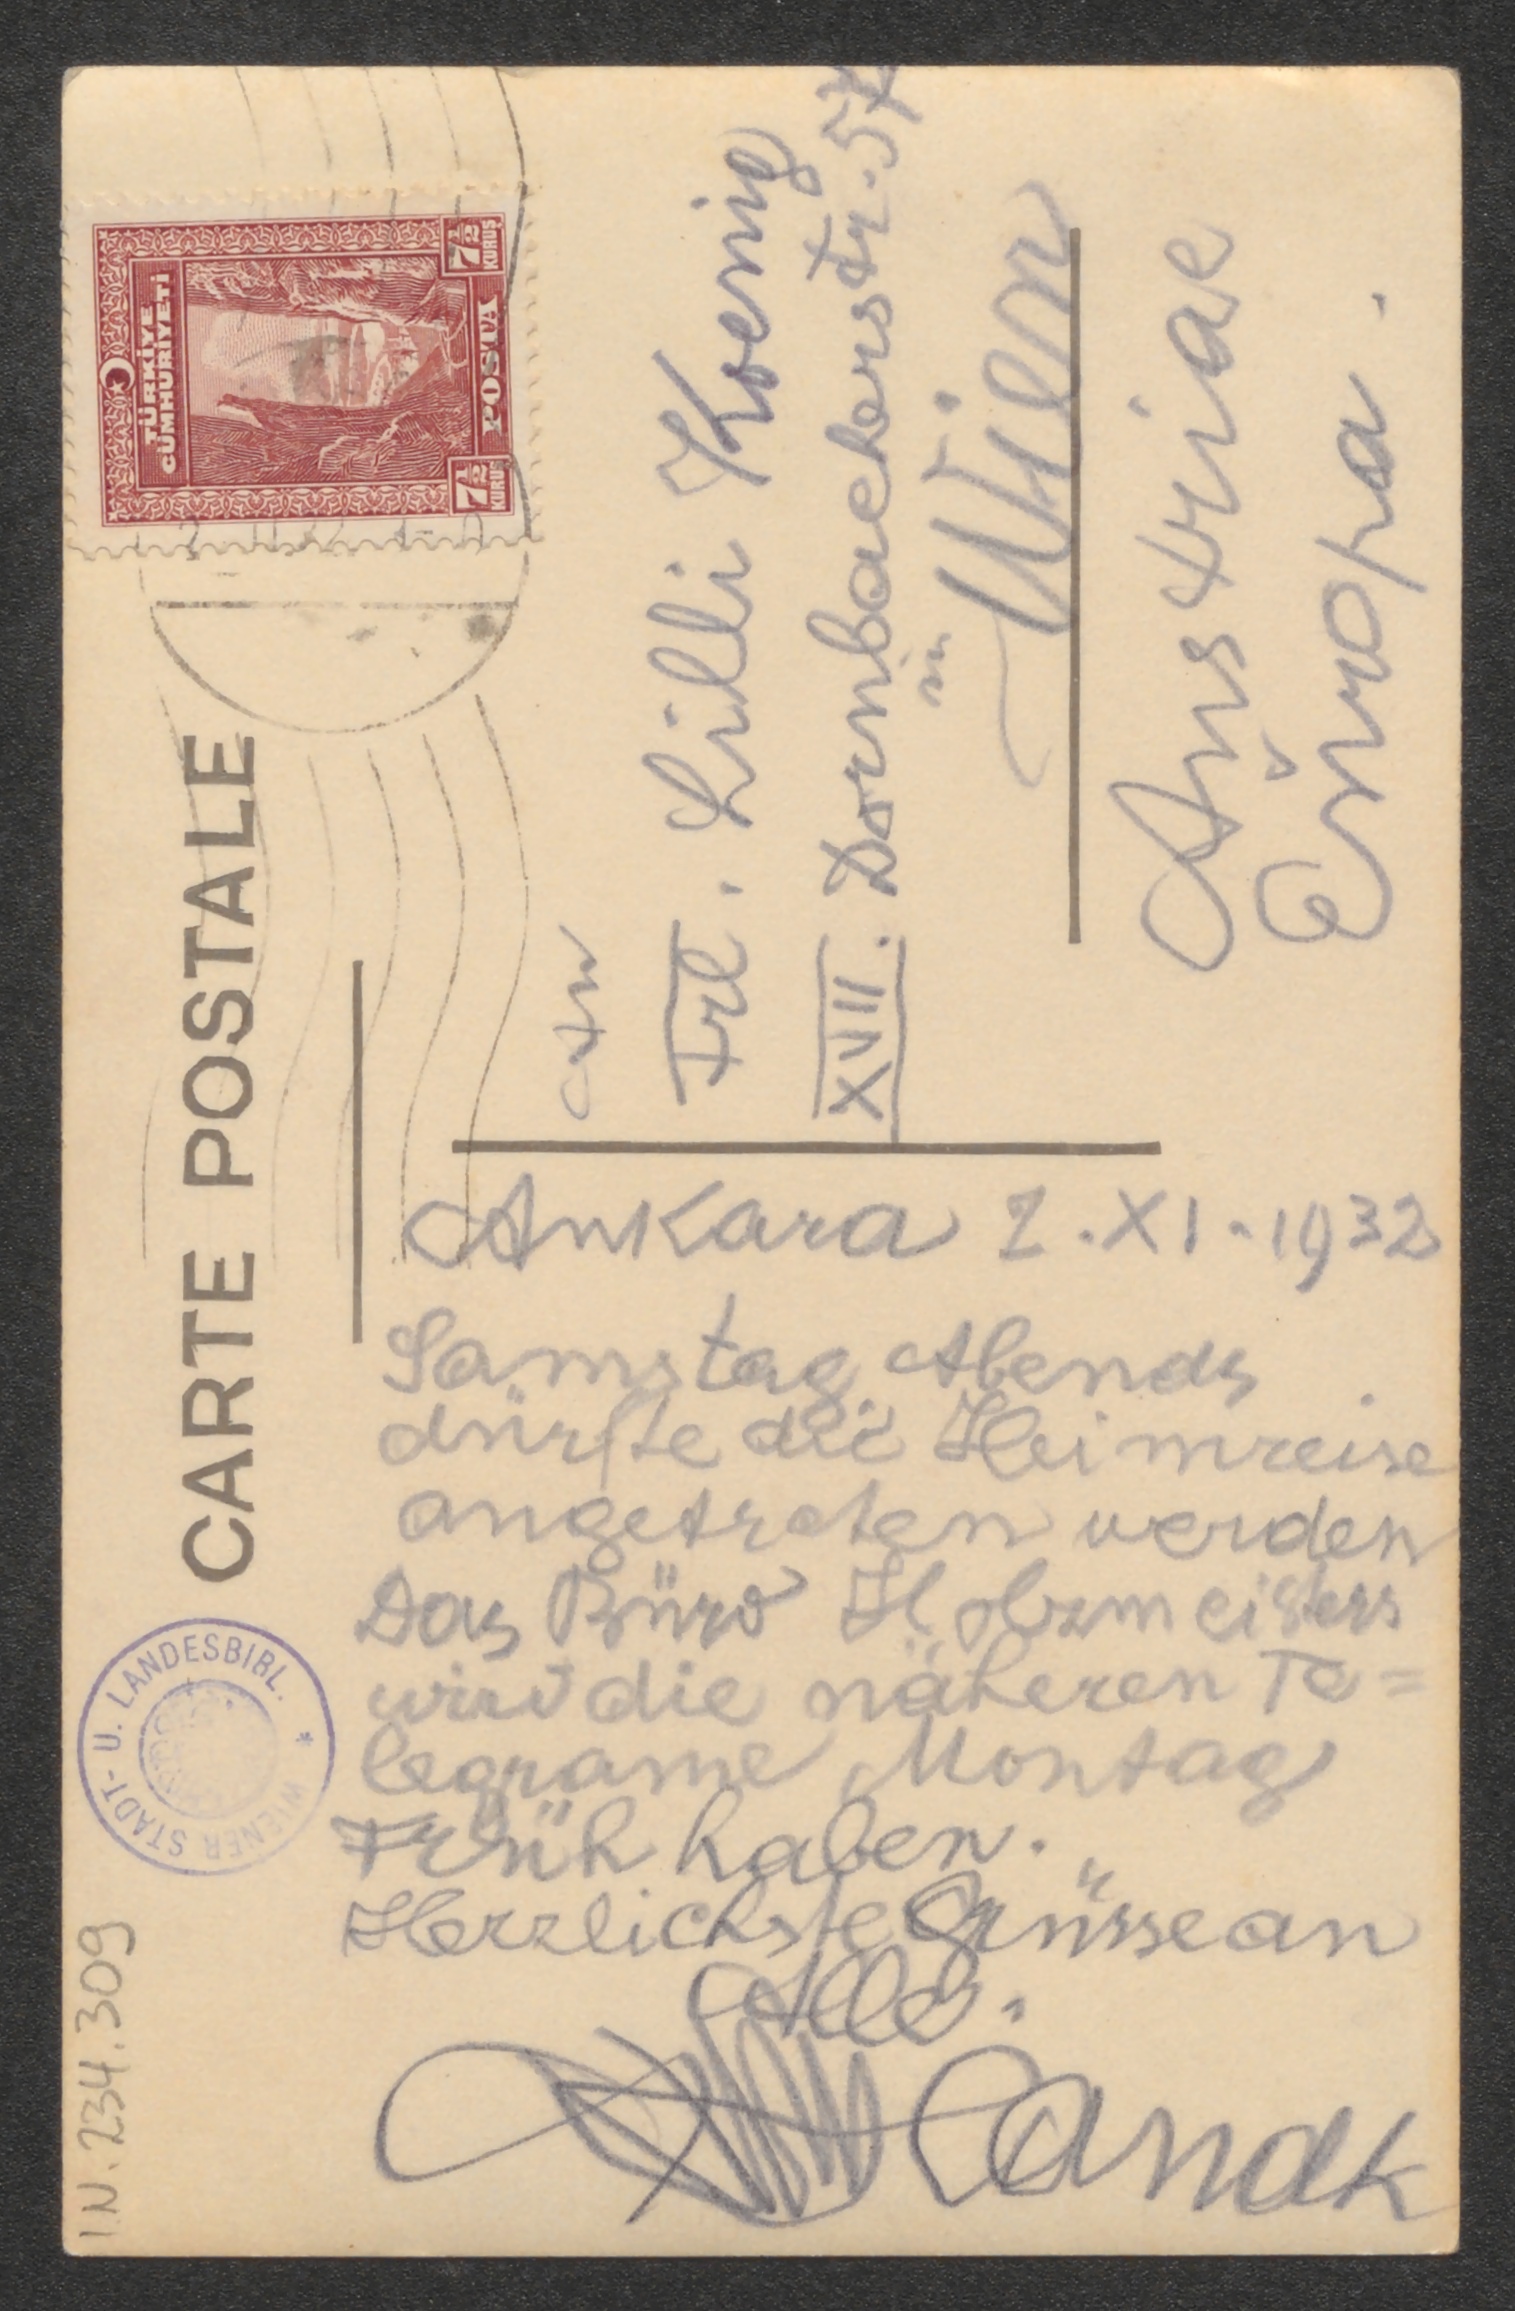 CARTE POSTALE
TÜRKİYE
CÜMHURİYETİ
7½
KURUŞ
POSTA
7½
KURUŞ
An
Frl. Lilli Koenig
XVII. Dornbacherstr. 57
in
Wien
Austriae
Europa.
Ankara 2.XI.1932
Samstag Abends
dürfte die Heimreise
angetreten werden
Das Büro Holzmeisters
wird die näheren Te=
legrame Montag
Früh haben.
Herzlichste Grüsse an
Alle.
Hanak
WIENER STADT- U. LANDESBIBL. *
I.N. 234.309